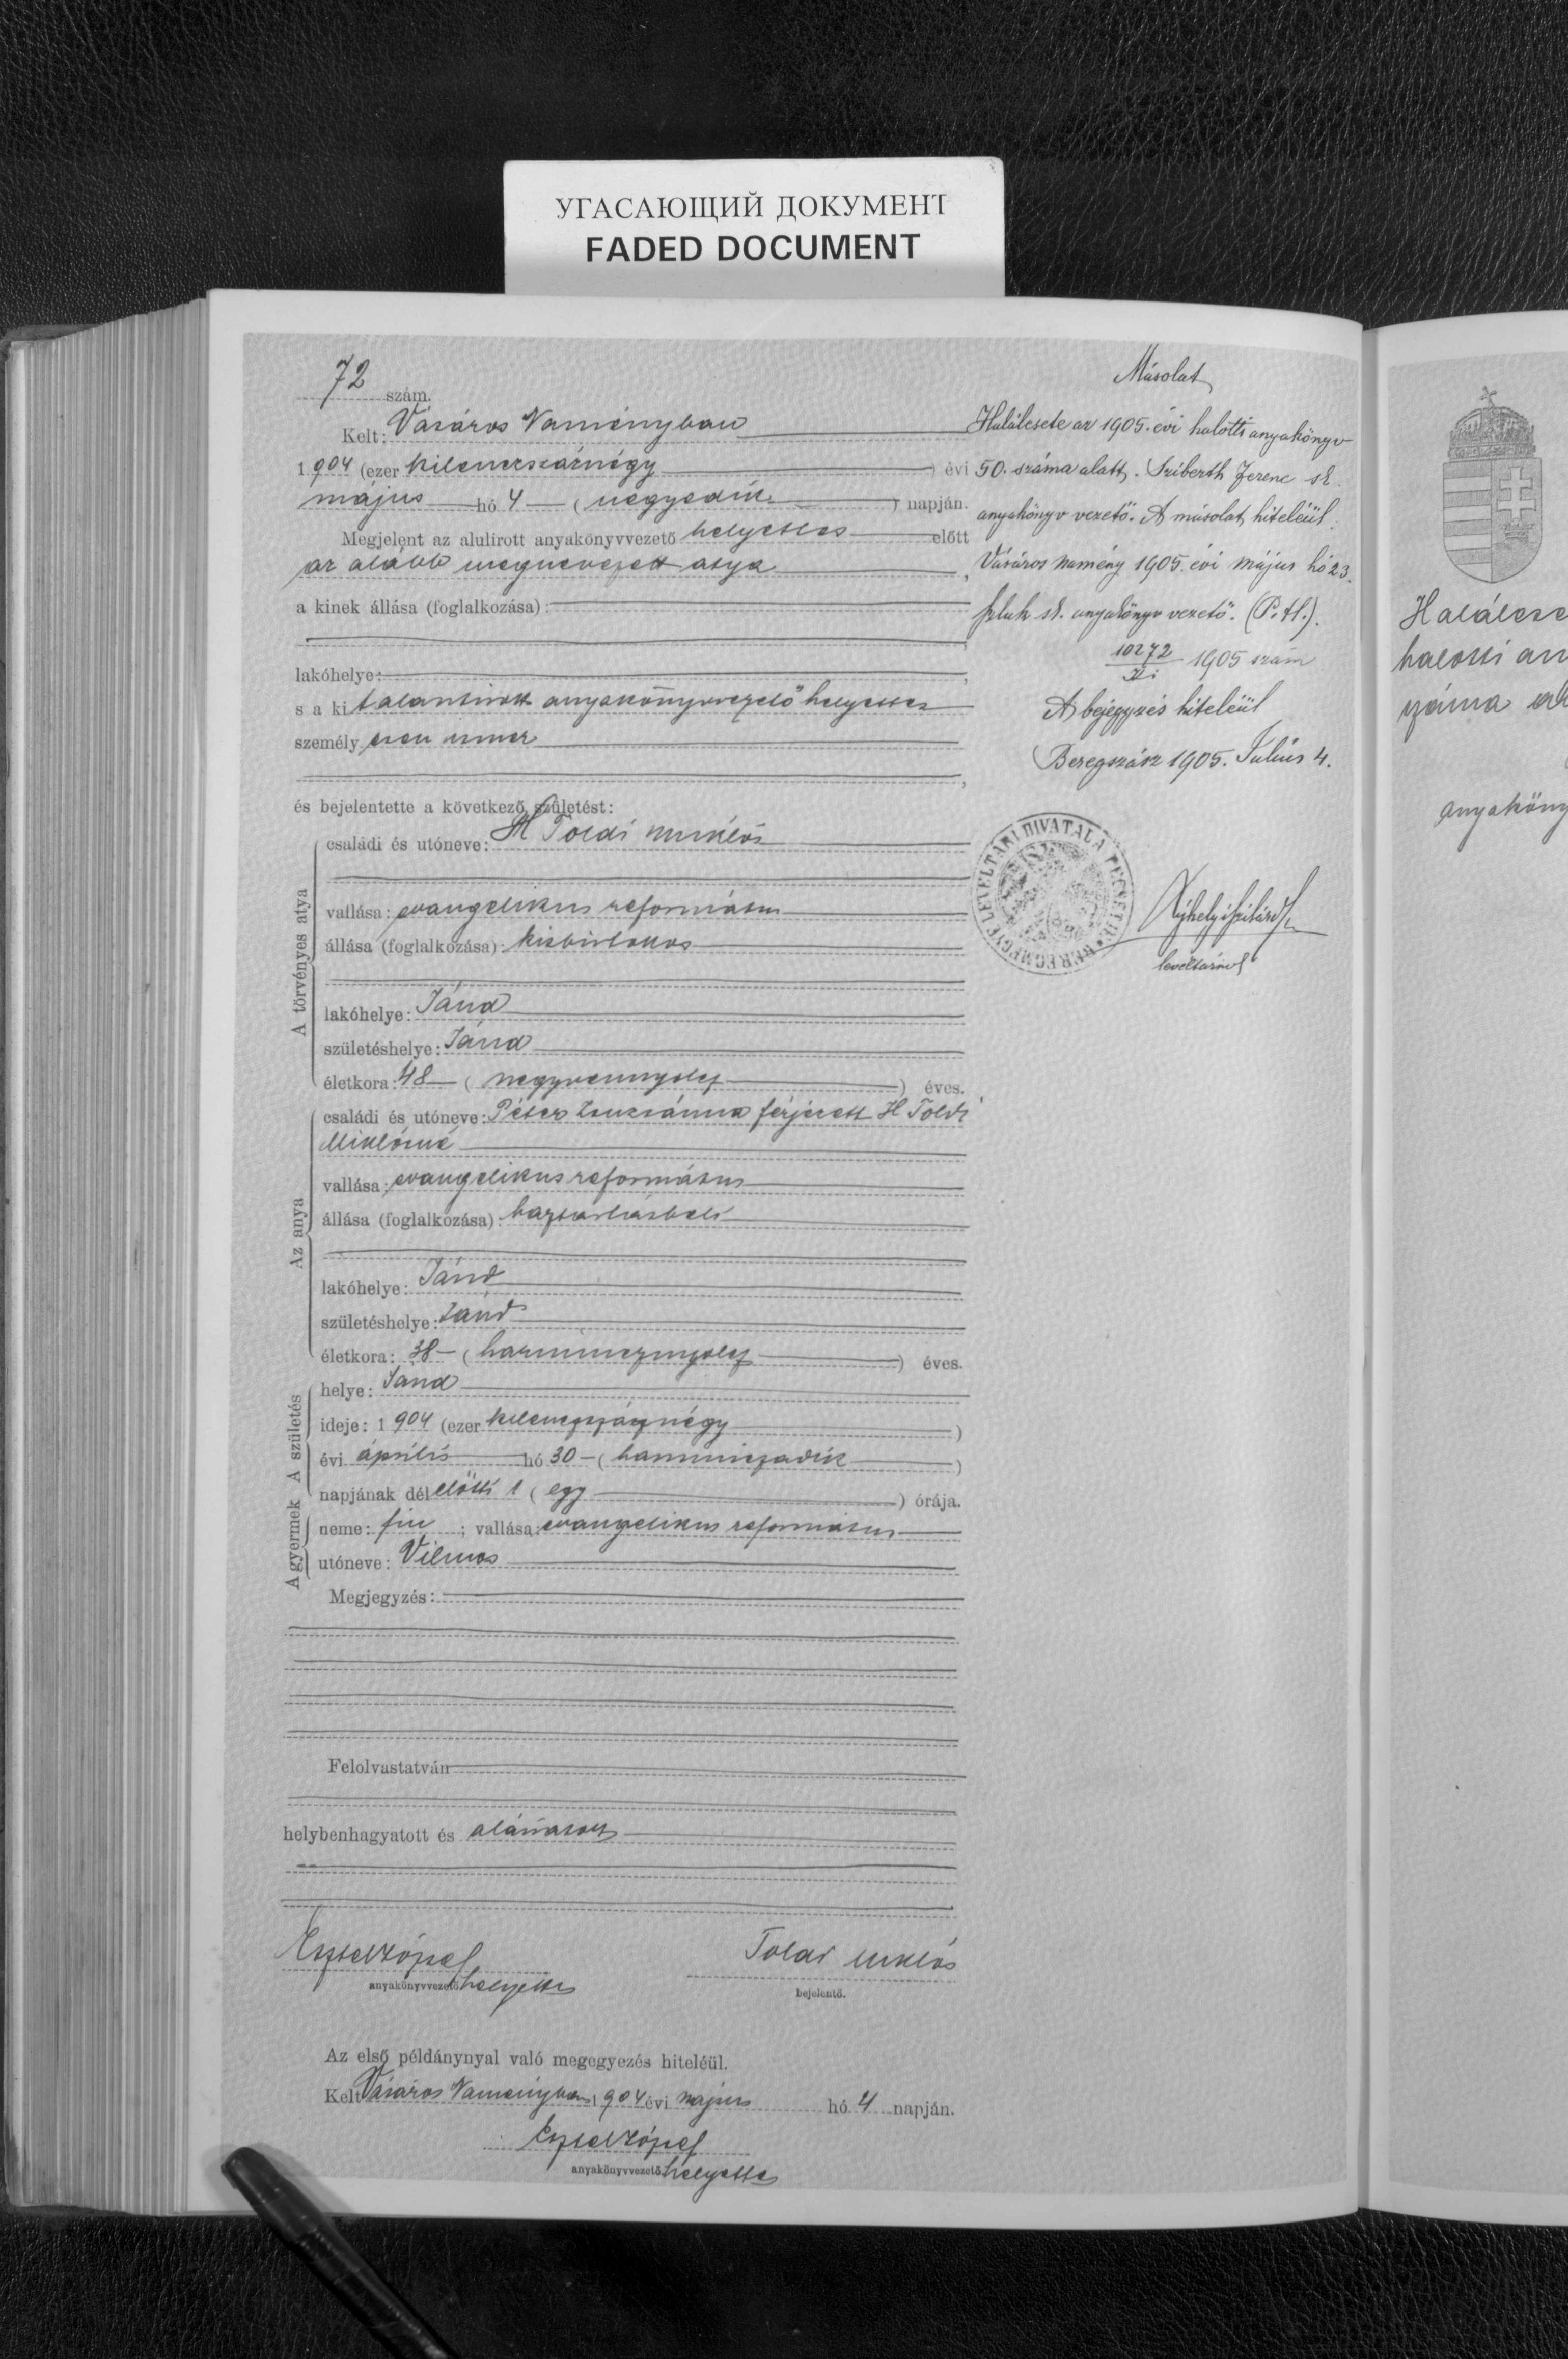 УГАСАЮЩИЙ ДОКУМЕНТ
FADED DOCUMENT
72 szám.
Kelt: Vásáros Naményban
1904 (ezer kilencszáznégy) évi
május hó 4 (negyedik) napján.
Megjelent az alulirott anyakönyvvezető helyettes előtt
az alább megnevezett atya,
a kinek állása (foglalkozása):
lakóhelye:
s a kit alantirott anyakönyvvezető helyettes
személyesen ismer
és bejelentette a következő születést:
A törvényes atya
családi és utóneve: H Toldi Miklós
vallása: evangelikus református
állása (foglalkozása): kisbirtokos
lakóhelye: Jánd
születéshelye: Jánd
életkora: 48 (negyvennyolcz) éves.
Az anya
családi és utóneve: Péter Zsuzsánna férjezett H Toldi
Miklósné
vallása: evangelikus református
állása (foglalkozása): háztartásbeli
lakóhelye: Jánd
születéshelye: Jánd
életkora: 38 (harmincznyolcz) éves.
A születés
helye: Jánd
ideje: 1904 (ezer kilenczszáznégy)
évi április hó 30 (harminczadik)
napjának délelőtti 1 (egy) órája.
A gyermek
neme: fiu; vallása: evangelikus református
utóneve: Vilmos
Megjegyzés:
Felolvastatván
helybenhagyatott és aláiratott
József
anyakönyvvezető helyettes
Toldi Miklós
bejelentő.
Az első példánynyal való megegyezés hiteléül.
Kelt Vásáros Naményban 1904 évi május hó 4 napján.
József
anyakönyvvezető helyettes
Másolat
Halálesete az 1905. évi halotti anyakönyv
50. száma alatt. Sziberth Ferenc sk.
anyakönyv vezető. A másolat hiteléül.
Vásáros namény 1905. évi május hó 23.
sk. anyakönyv vezető. (P.H.).
10272 1905 szám
A bejegyzés hiteléül
Beregszász 1905. Július 4.
BEREGMEGYE LEVÉLTÁRI HIVATALA PECSÉTJE
levéltárnok
Halálese
halotti an
száma al
anyaköny